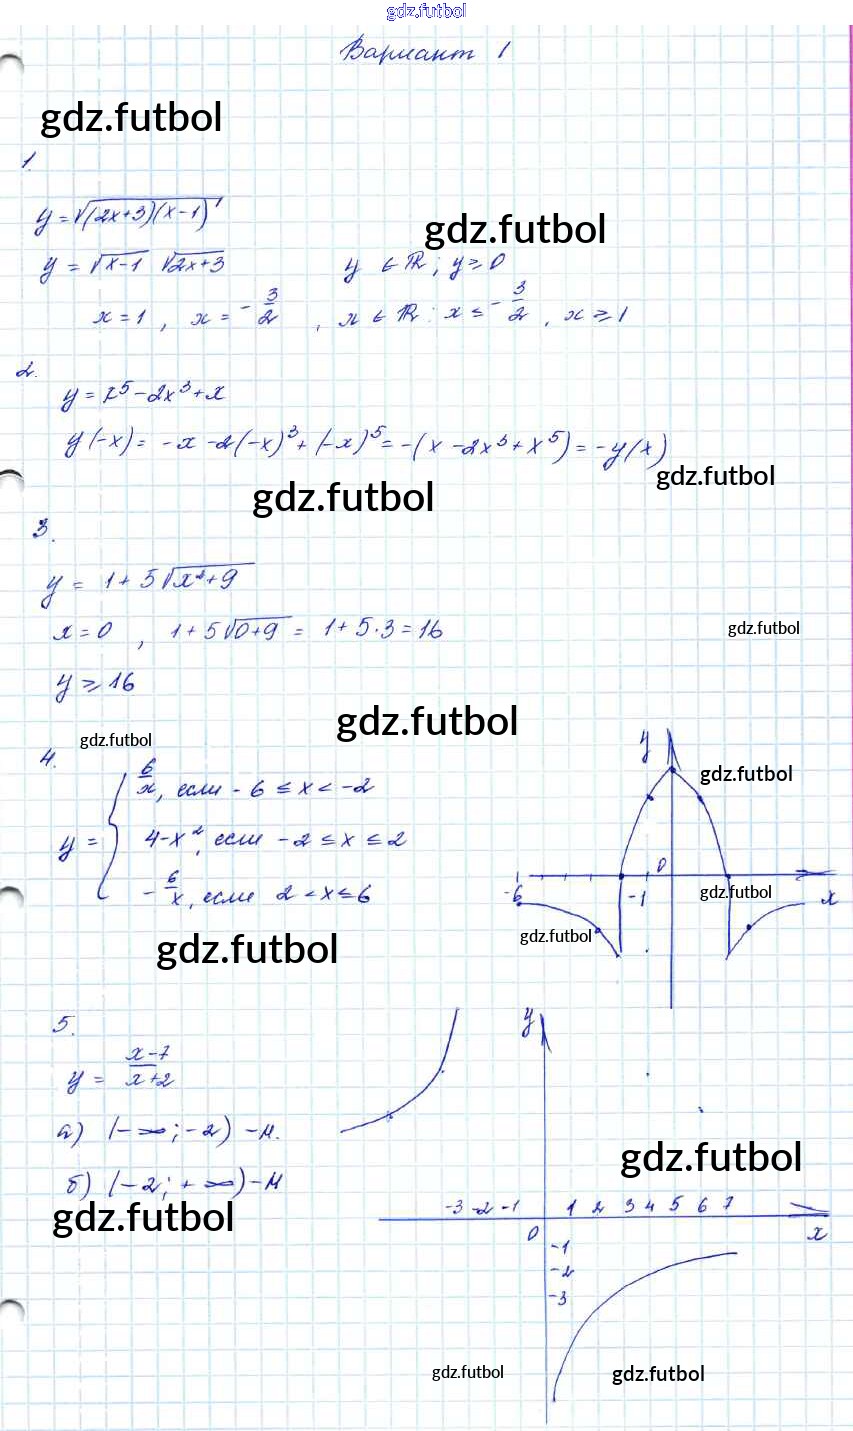 gdz.futbol
Вариант 1
gdz.futbol
1.
y = √(2x+3)(x-1)
gdz.futbol
y = √x-1 √2x+3    y ∈ ℝ ; y ≥ 0
x = 1 , x = - 3/2 , x ∈ ℝ : x ≤ - 3/2 , x ≥ 1
2.
y = x⁵ - 2x³ + x
y(-x) = -x - 2(-x)³ + (-x)⁵ = -(x - 2x³ + x⁵) = -y(x)
gdz.futbol
gdz.futbol
3.
y = 1 + 5√x²+9
x = 0 , 1 + 5√0+9 = 1 + 5·3 = 16
gdz.futbol
y ≥ 16
gdz.futbol
4.
gdz.futbol
y = { 6/x, если -6 ≤ x < -2
4-x², если -2 ≤ x ≤ 2
- 6/x, если 2 < x ≤ 6
y
gdz.futbol
0
-6 -1 x
gdz.futbol
gdz.futbol
gdz.futbol
5.
y = x-7/x+2
а) (-∞; -2) - м.
б) (-2; +∞) - м
gdz.futbol
y
gdz.futbol
-3 -2 -1 1 2 3 4 5 6 7
0 x
-1
-2
-3
gdz.futbol
gdz.futbol